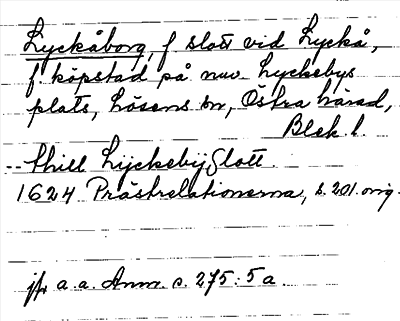 Lyckåborg, f. slott vid Lyckå,
f. köpstad på nuv. Lyckebys
plats, Lösens sn, Östra härad,
Blek. l.
-- thill Lyckebÿ Slott.
1624 Prästrelationerna, s. 201. orig.
jfr a. a. Anm. s. 275: 5 a.